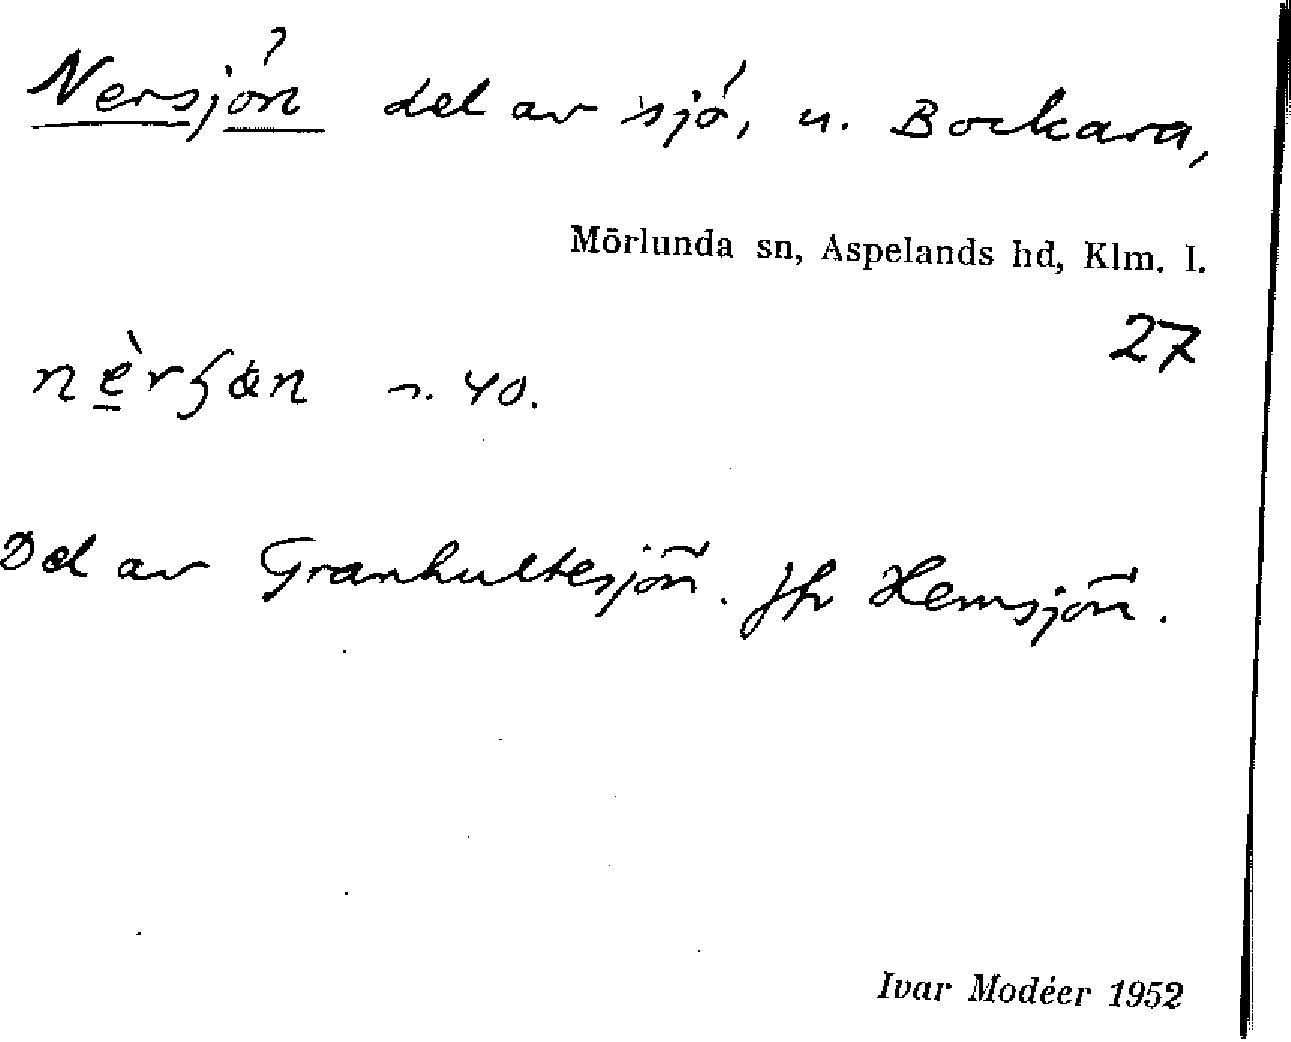 Nersjön del av sjö, u. Bockara,
Mörlunda sn, Aspelands hd, Klm. l.
27
40.
Del av Granhultesjön. Jfr Hemsjön.
Ivar Modéer 1952